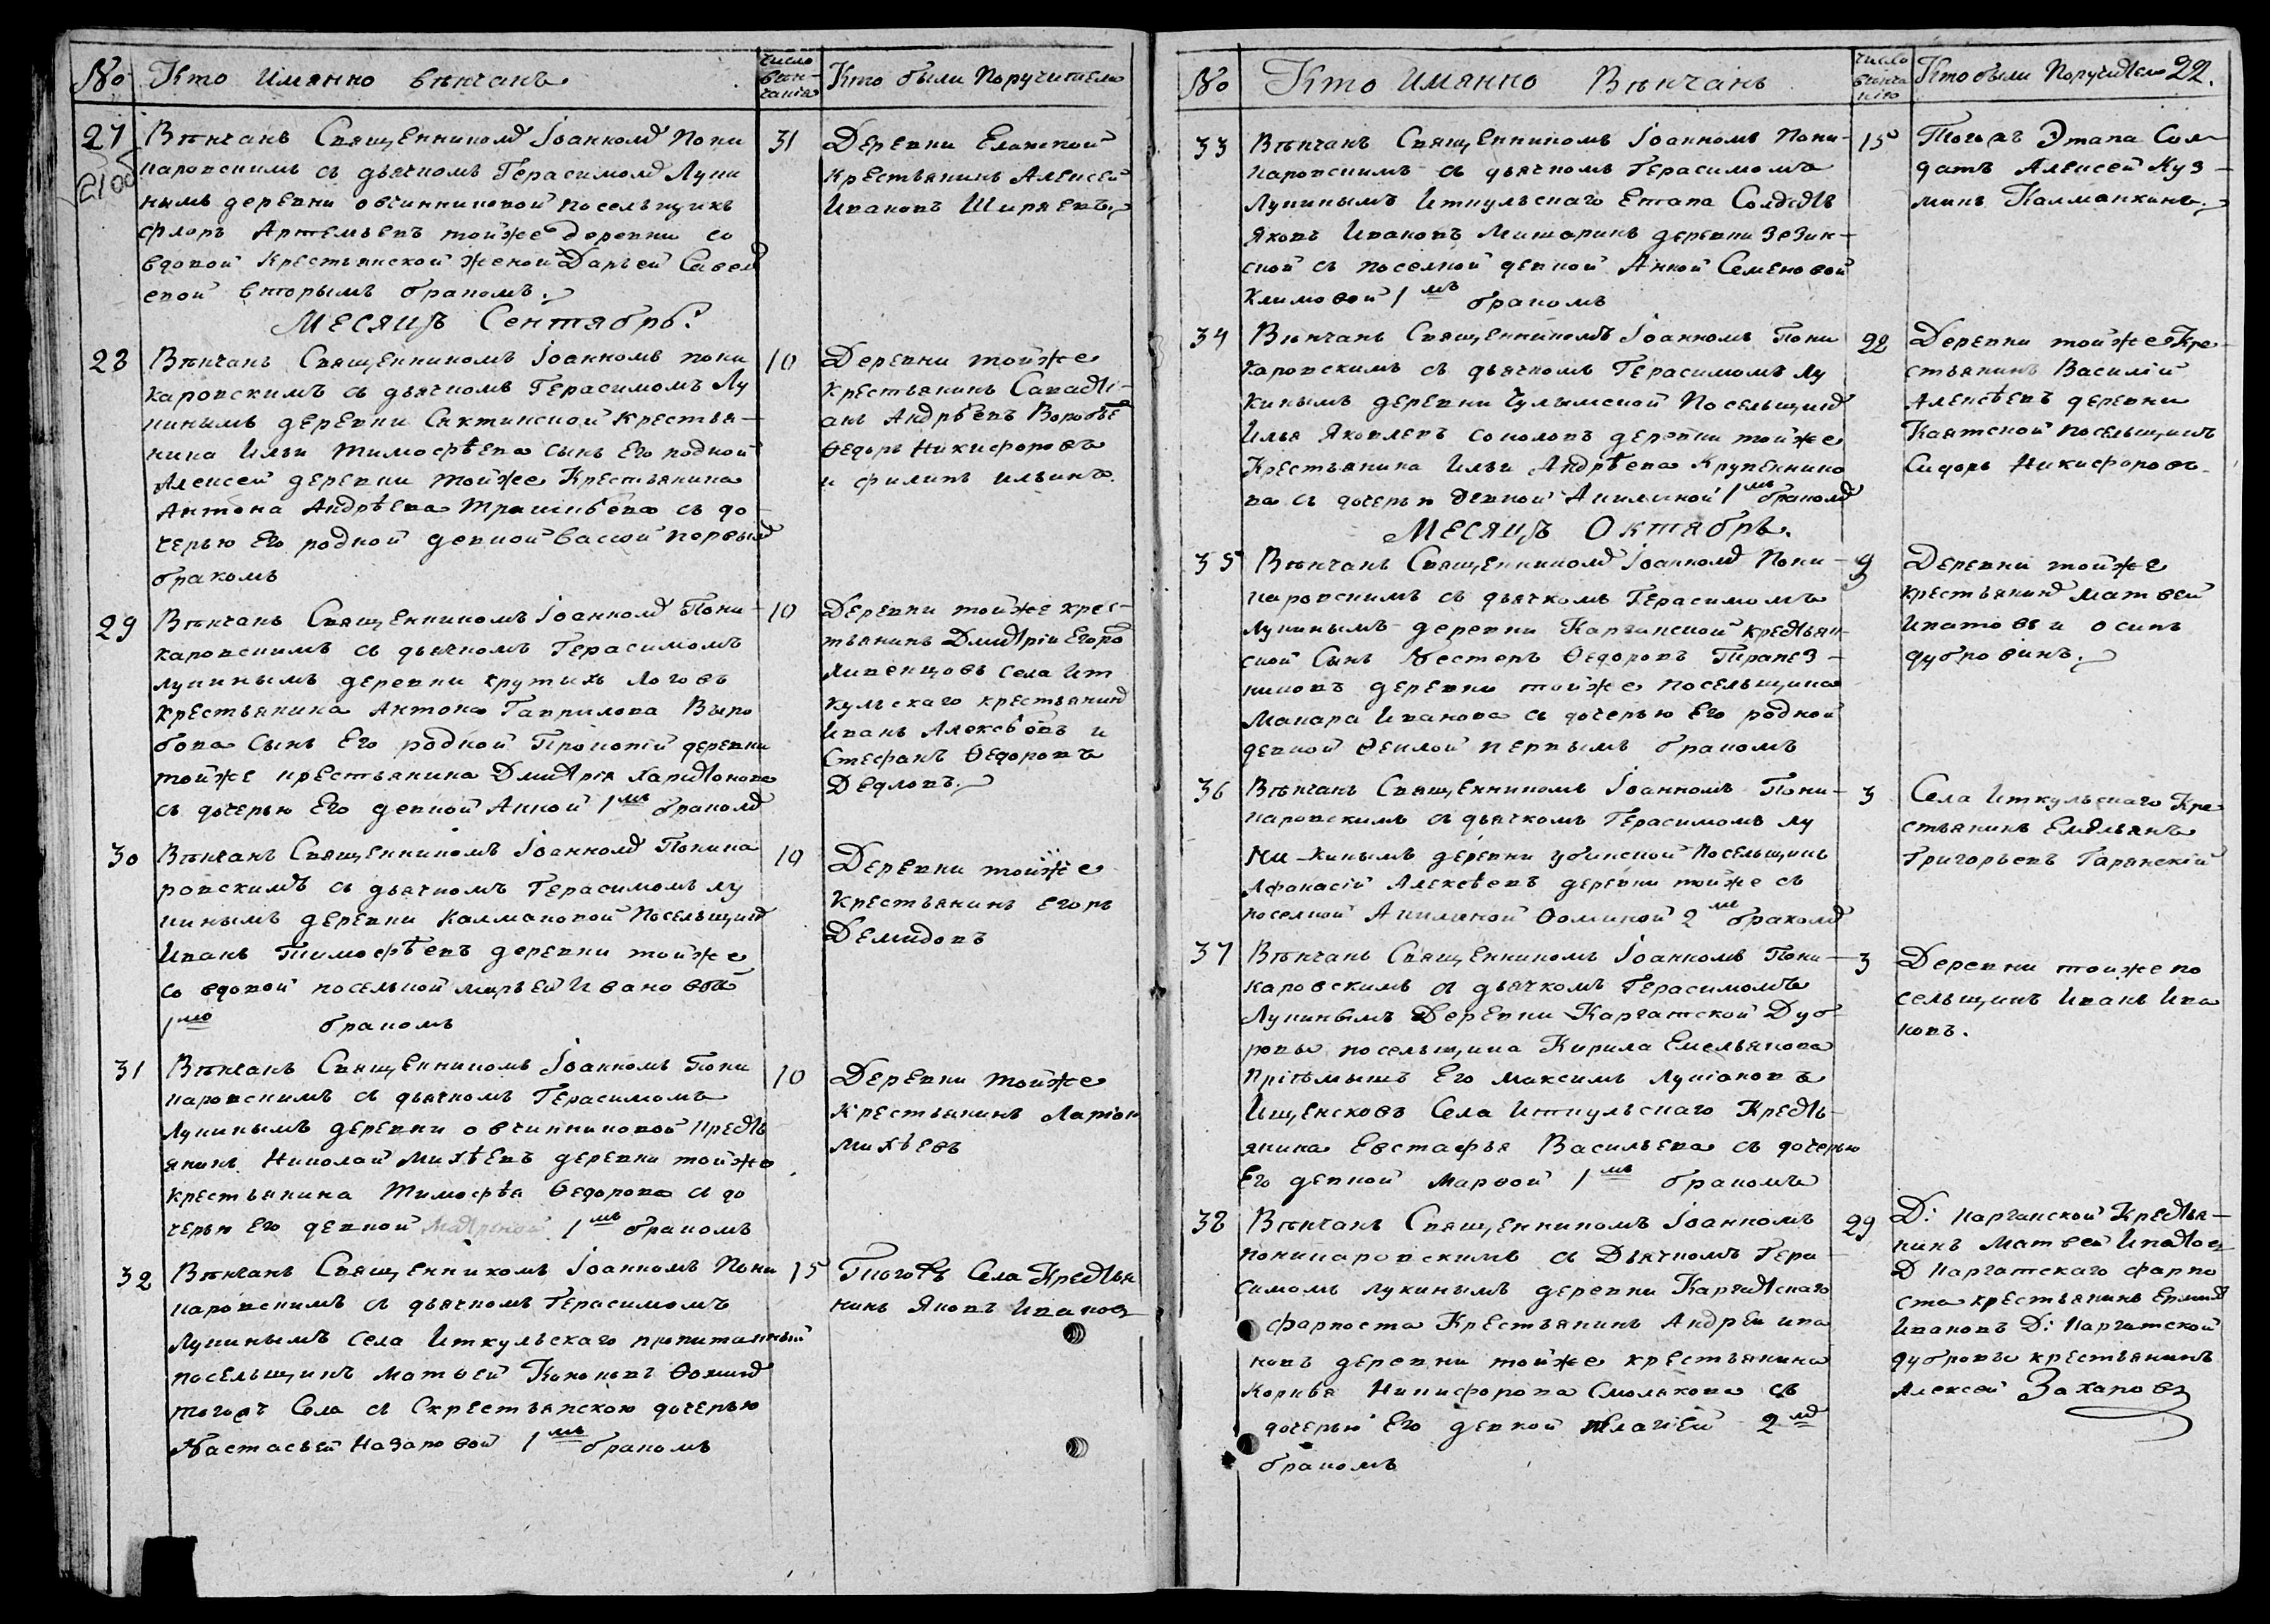 № Кто имянно венчанъ
число вѣнчания
Кто были Поручители
27
Вѣнчанъ Священникомъ Іоанномъ Пони
каровскимъ съ дьячкомъ Герасимомъ Луки
нымъ деревни овчинниковой посельщикъ
флоръ Артемьевъ тойже деревни со
вдовой крестьянской женой Дарьей Савел
евой вторымъ бракомъ.
31
Деревни Еланской
крестьянинъ Алексей
Ивановъ Ширяевъ.
Месяцъ Сентябрь.
28
Вѣнчанъ Священникомъ Іоанномъ пони
каровскимъ съ дьячкомъ Герасимомъ Лу
кинымъ деревни Сектинской крестья-
нина Ильи Тимофѣева сынъ Его родной
Алексей деревни тойже Крестьянина
Антона Андрѣева съ до
черью Его родной девкой Вассой первым
бракомъ
10
Деревни тойже
крестьянинъ Савасті-
анъ Андрѣевъ Воробьев
Ѳедоръ Никифоровъ
и филипъ ильинъ.
29
Вѣнчанъ Священникомъ Іоанномъ Пони-
каровскимъ съ дьячкомъ Герасимомъ
лукинымъ деревни крутыхъ логовъ
крестьянина Антона Гаврилова Выро
бова Сынъ Его родной Прокопій деревни
тойже крестьянина Дмитрія Харитонова
съ дочерью Его девкой Анной 1мъ бракомъ
10
Деревни тойже крес-
тьянинъ Дмитрій Егоро
Ливенцовъ Села Ит
кульскаго крестьянинъ
Иванъ Алексѣевъ и
Стефанъ Ѳедоровъ
Дедловъ.
30
Вѣнчанъ Священникомъ Іоанномъ Поника
ровскимъ съ дьячкомъ Герасимомъ лу
кинымъ деревни Калмаковой Посельщикъ
Иванъ Тимофѣевъ деревни тойже
со вдовой поселкой марьей Ивановой
1мъ бракомъ
10
Деревни тойже
Крестьянинъ Егоръ
Демидовъ
31
Вѣнчанъ Священникомъ Іоанномъ Пони
каровскимъ съ дьячкомъ Герасимомъ
Лукинымъ деревни овчинниковой крестъ
янинъ Николай Михѣевъ деревни тойже
крестьянина Тимофѣя Ѳедорова съ до
черью Его девкой Матреной 1мъ бракомъ
10
Деревни тойже
Крестьянинъ Ларіон
михѣевъ
32
Вѣнчанъ Священникомъ Іоанномъ Пони
каровскимъ съ дьячкомъ Герасимомъ
Лукинымъ села Иткульскаго пропитанный
посельщикъ Матвей Кононовъ Ѳоминъ
тогожъ Села съ Скрестьянскою дочерью
Настасьей Назаровой 1мъ бракомъ
15
Тогожъ Села Крестья
нинъ Яковъ Ивановъ
№ Кто имянно Вѣнчанъ
число венчанію
Кто были Поручители 22.
33
Вѣнчанъ Священникомъ Іоанномъ Пони-
каровскимъ съ дьячкомъ Герасимомъ
Лукинымъ Иткульскаго Етапа Солдатъ
Яковъ Ивановъ Мишаринъ деревни Зезин-
ской съ поселкой девкой Анной Семеновой
Климовой 1мъ бракомъ
15
Тогожъ Этапа Сол-
датъ Алексей Куз-
минъ Калманкинъ.
34
Вѣнчанъ Священникомъ Іоанномъ Пони
каровскимъ съ дьячкомъ Герасимомъ Лу
кинымъ деревни Чулымской Посельщикъ
Илья Яковлевъ соколовъ деревни тойже
Крестьянина Ильи Андрѣева Крупеннико
ва съ дочерью девкой Акилиной 1мъ бракомъ
22
Деревни тойже Кре-
стьянинъ Василій
Алексѣевъ деревни
Каятской посельщикъ
Сидоръ Никифоровъ.
Месяцъ Октябрь.
35
Вѣнчанъ Священникомъ Іоанномъ Пони-
каровскимъ съ дьячкомъ Герасимомъ
лукинымъ деревни Карганской крестьян-
ской Сынъ Нестеръ Ѳедоровъ Трапез-
никовъ деревни тойже посельщика
Макара Иванова съ дочерью Его родной
девкой Ѳеклой первымъ бракомъ
9
Деревни тойже
крестьянинъ матвей
Ипатовъ и осипъ
дубровинъ.
36
Вѣнчанъ Священникомъ Іоанномъ Пони-
каровскимъ съ дьячкомъ Герасимомъ лу
кинымъ деревни убинской посельщикъ
Афонасій Алексѣевъ деревни тойже съ
поселкой Акилиной Ѳоминой 2мъ бракомъ
3
Села Иткульскаго Кре
стьянинъ Емельянъ
Григорьевъ Гарянскій
37
Вѣнчанъ Священникомъ Іоанномъ Пони-
каровскимъ съ дьячкомъ Герасимомъ
Лукинымъ Деревни Каргатской Дуб
ровы посельщика Кирила Емельянова
Пріемышъ Его Максимъ Лукіановъ
Ищенсковъ Села Иткульскаго Кресть-
янина Евстафья Васильева съ дочерью
Его девкой Марѳой 1мъ бракомъ
3
Деревни тойже по
сельщикъ Иванъ Ива
новъ.
38
Вѣнчанъ Священникомъ Іоанномъ
поникаровскимъ съ Дьячкомъ Гера-
симомъ лукинымъ деревни Каргатскаго
фарпоста Крестьянинъ Андрей ива
новъ деревни тойже крестьянина
Корнѣя Никифорова Смолякова съ
дочерью Его девкой пелагіей 2мъ
бракомъ
29
Д: карганской Крестья-
нинъ Матвей Ипатов
Д Каргатскаго фарпо
ста крестьянинъ Ермил
Ивановъ Д: Каргатской
дубровы крестьянинъ
Алексей Захаровъ